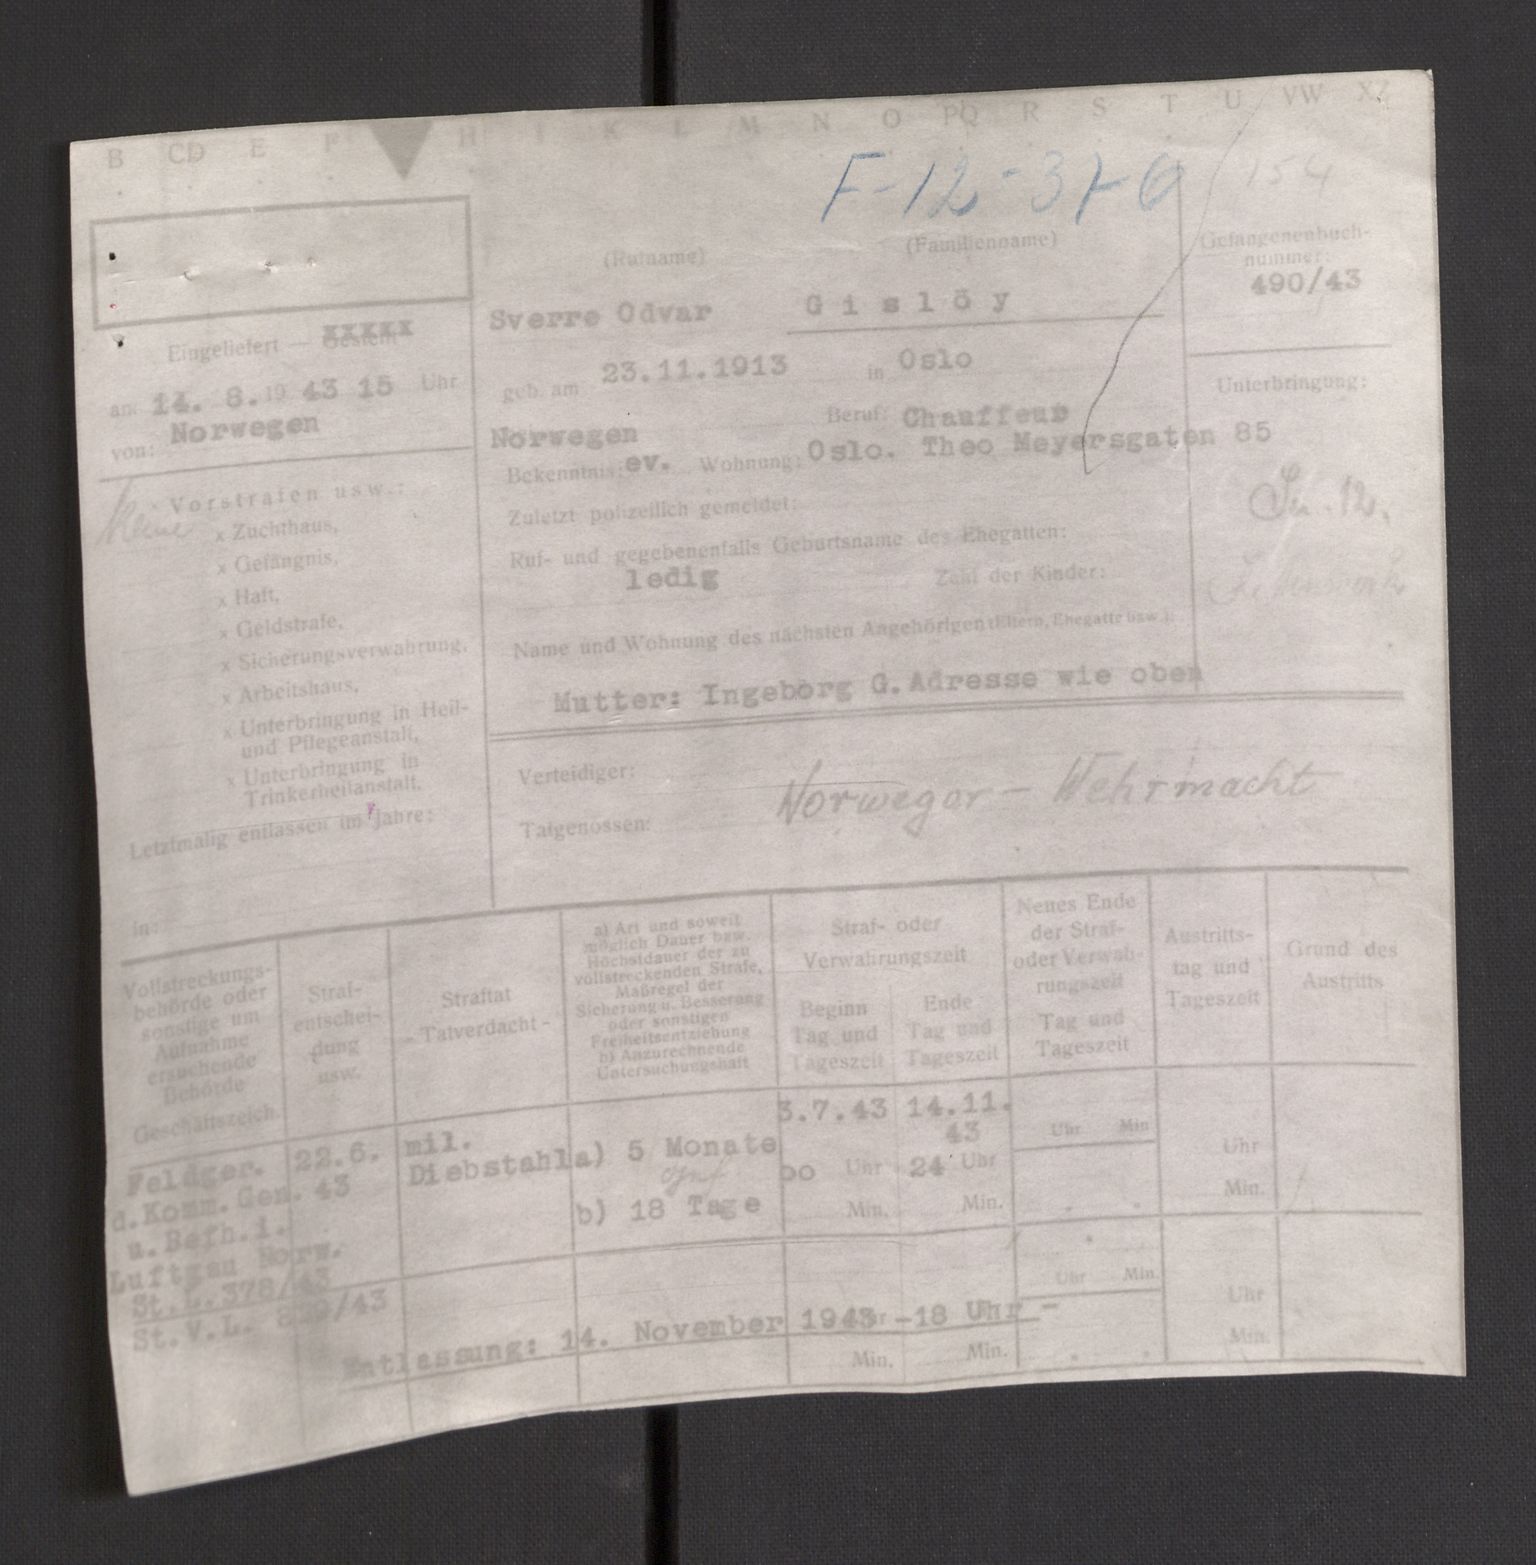 B CD E F H I K L M N O PQ R S T U VW XZ
F-12-376
154
(Rufname) (Familienname)
Gefangenenbuch-
nummer:
490/43
Sverre Odvar Gislöy
xxxxx
Eingeliefert — Gestellt
am 14. 8. 19 43 15 Uhr
von: Norwegen
geb. am 23.11.1913 in Oslo
Norwegen Beruf: Chauffeur
Bekenntnis: ev. Wohnung: Oslo. Theo Meyersgaten 85
Zuletzt polizeilich gemeldet:
Ruf- und gegebenenfalls Geburtsname des Ehegatten:
ledig Zahl der Kinder:
Name und Wohnung des nächsten Angehörigen (Eltern, Ehegatte usw.):
Mutter: Ingeborg G. Adresse wie oben
Unterbringung:
keine
x Vorstrafen usw.:
x Zuchthaus,
x Gefängnis,
x Haft,
x Geldstrafe,
x Sicherungsverwahrung,
x Arbeitshaus,
x Unterbringung in Heil-
und Pflegeanstalt,
x Unterbringung in
Trinkerheilanstalt,
Letztmalig entlassen im Jahre:
in:
Verteidiger:
Tatgenossen:
Norweger - Wehrmacht
Vollstreckungs-
behörde oder
sonstige um
Aufnahme
ersuchende
Behörde
Geschäftszeich.
Straf-
entschei-
dung
usw.
Straftat
- Tatverdacht -
a) Art und soweit
möglich Dauer bzw.
Höchstdauer der zu
vollstreckenden Strafe,
Maßregel der
Sicherung u. Besserung
oder sonstigen
Freiheitsentziehung
b) Anzurechnende
Untersuchungshaft
Straf- oder
Verwahrungszeit
Beginn
Tag und
Tageszeit
Ende
Tag und
Tageszeit
Neues Ende
der Straf-
oder Verwah-
rungszeit
Tag und
Tageszeit
Austritts-
tag und
Tageszeit
Grund des
Austritts
Feldger.
d.Komm.Gen.
u. Befh. i.
Luftgau Norw.
St.L.378/43
St.V.L. 839/43
22.6.
43
mil.
Diebstahl
a) 5 Monate
b) 18 Tage
3.7.43
oo Uhr
Min.
14.11.
43
24 Uhr
Min.
Uhr Min
Uhr
Min.
Uhr Min.
Uhr
Min.
Entlassung: 14. November 1943 -18 Uhr -
Min. Min.